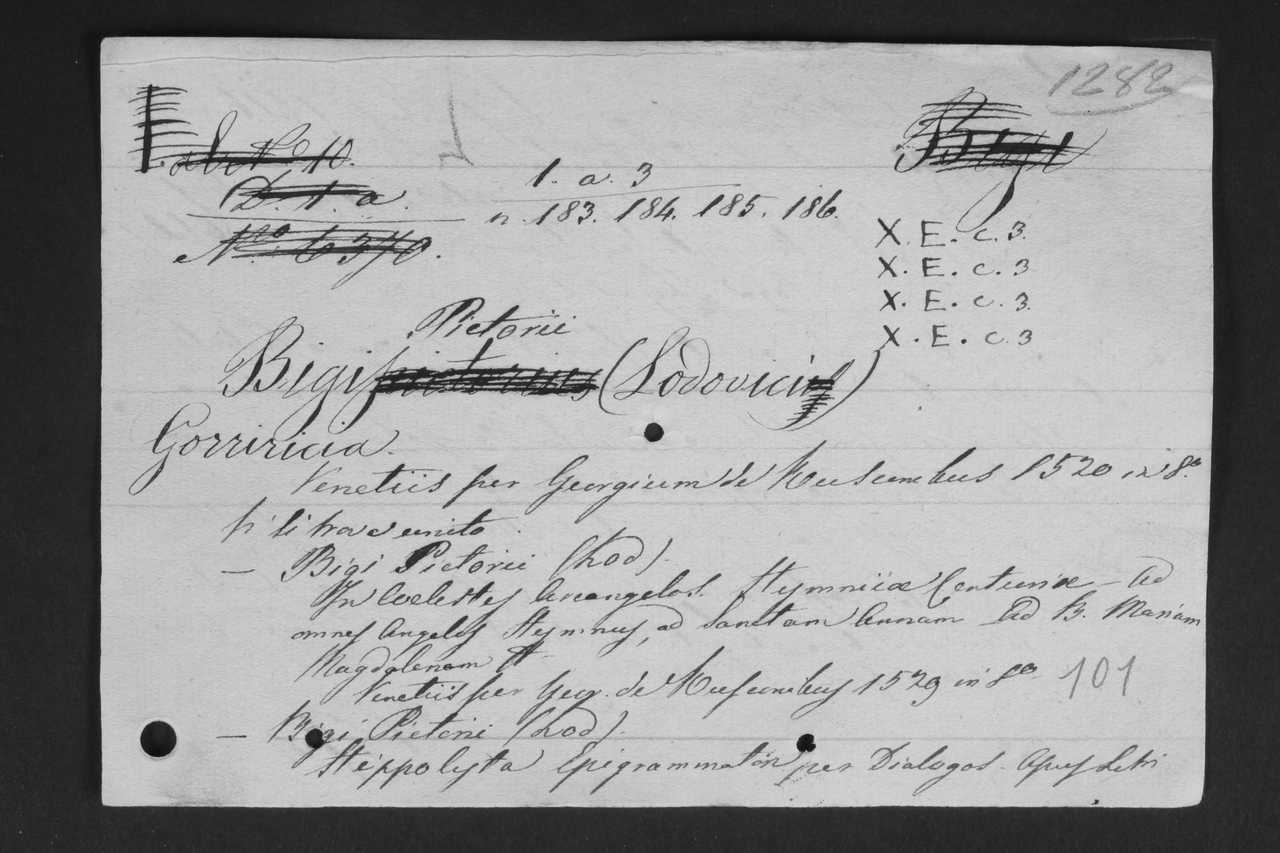 1282
1. a. 3
n. 183. 184. 185. 186.
X. E. c. 3.
X. E. c. 3
X. E. c. 3.
X. E. c. 3
Pictorii
Bigi (Lodovici)
Gorriricia.
Venetiis per Georgium de Rusconibus 1520 in 8º.
— Bigi Pictorii (Lod).
In Coelestes Arcangelos. Hymnicae Centuriae — Ad
omnes Angelos Hymnus, ad Sanctam Annam Ad B. Mariam
Magdalenam
Venetiis per Geor. de Rusconibus 1529 in 8º
101
— Bigi Pictorii (Lod).
Hippolyta Epigrammaton per Dialogos.